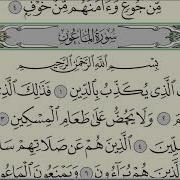 مِّن جُوعٍ وَءَامَنَهُم مِّنْ خَوْفٍ ٤
سُورَةُ المَاعُونِ
بِسْمِ ٱللَّهِ ٱلرَّحْمَٰنِ ٱلرَّحِيمِ
ٱلَّذِى يُكَذِّبُ بِٱلدِّينِ ١ فَذَٰلِكَ ٱلَّذِ
مَ ٢ وَلَا يَحُضُّ عَلَىٰ طَعَامِ ٱلْمِسْكِينِ ٣
لِّينَ ٤ ٱلَّذِينَ هُمْ عَن صَلَاتِهِمْ سَا
ٱلَّذِينَ هُمْ يُرَآءُونَ ٦ وَيَمْنَعُونَ ٱلْمَاعُو